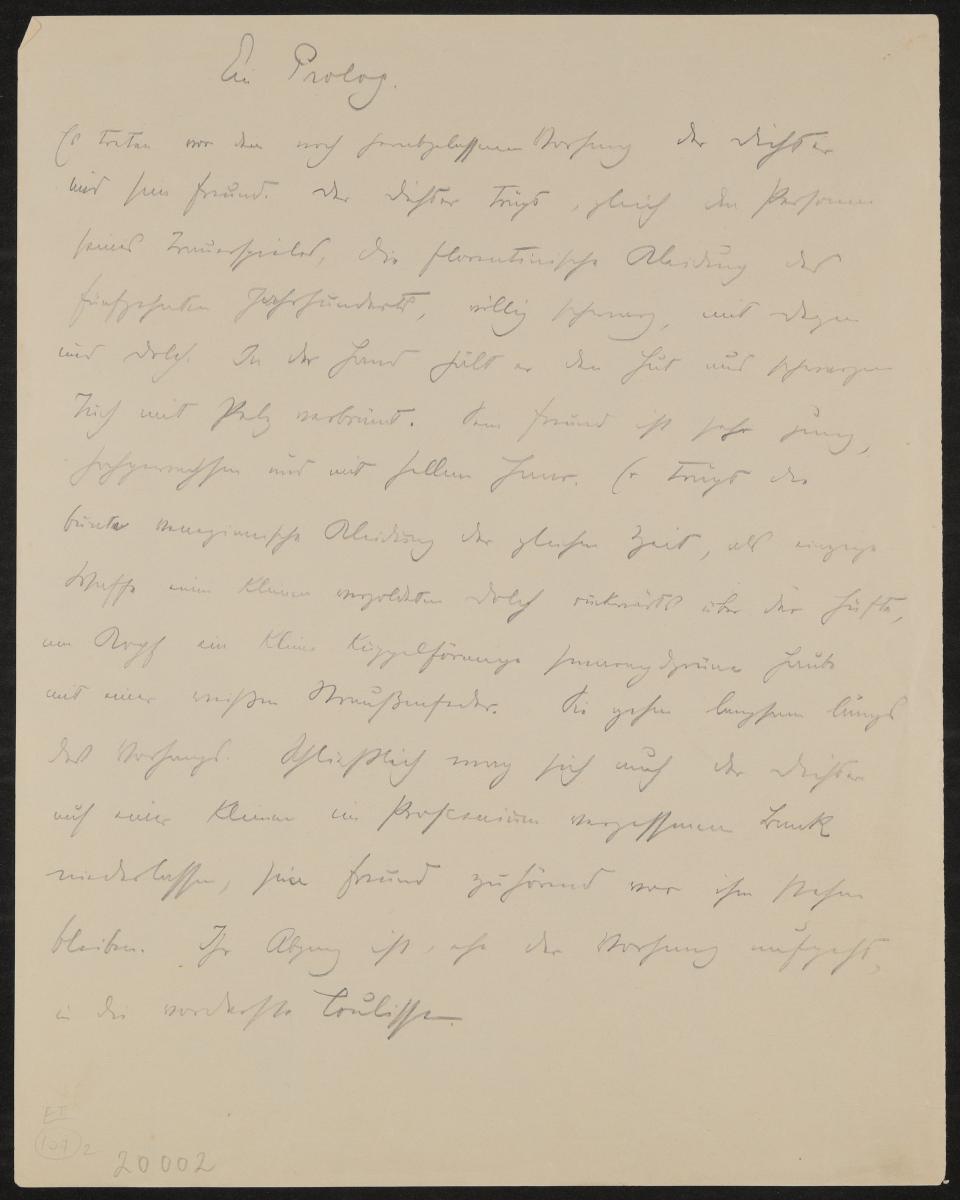 Ein Prolog.
Es treten vor den noch herabgelassenen Vorhang der Dichter
und sein Freund. Der Dichter trägt, gleich den Personen
seines Trauerspieles, die florentinische Kleidung des
fünfzehnten Jahrhunderts, völlig schwarz, mit Degen
und Dolch. In der Hand hält er den Hut aus schwarzem
Tuch mit Pelz verbrämt. Sein Freund ist sehr jung,
hochgewachsen und mit hellem Haar. Er trägt die
bunte venezianische Kleidung der gleichen Zeit, als einzige
Waffe einen kleinen vergoldeten Dolch rückwärts über der Hüfte,
am Kopf eine kleine kuppelförmige smaragdgrüne Haube
mit einer weißen Straußenfeder. Sie gehen langsam längs
des Vorhangs. Schließlich mag sich auch der Dichter
auf einer kleinen im Proscenium vergessenen Bank
niederlassen, sein Freund zuhörend vor ihm stehen
bleiben. Ihr Abgang ist, ehe der Vorhang aufgeht,
in die vorderste Coulisse.
EII
109 2
20002